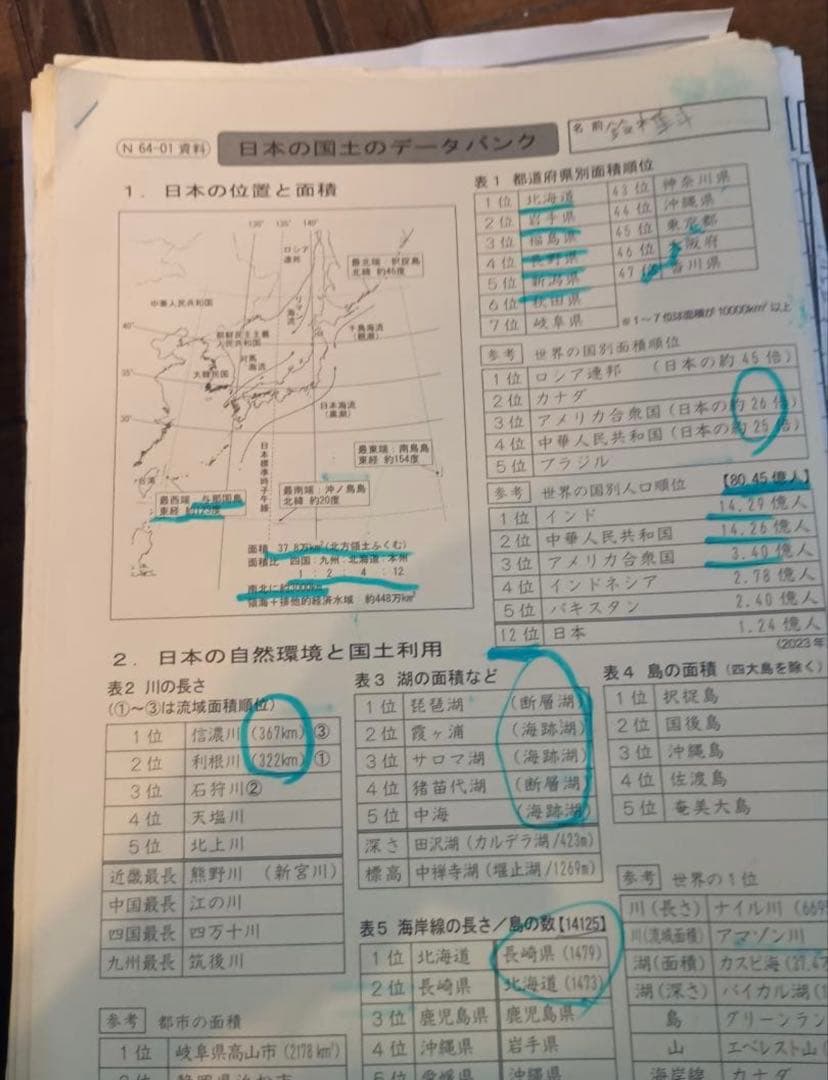 N 64-01 資料
日本の国土のデータバンク
名前
1. 日本の位置と面積
130° 135° 140°
ロシア連邦
最北端：択捉島
北緯 約46度
中華人民共和国
リマン海流
40°
朝鮮民主主義
人民共和国
千島海流
（親潮）
対馬海流
大韓民国
35°
日本海流
（黒潮）
30°
日本標準時子午線
最東端：南鳥島
東経 約154度
台湾
最西端：与那国島
東経 約123度
最南端：沖ノ鳥島
北緯 約20度
面積 37.8万km²(北方領土ふくむ)
面積比 四国：九州：北海道：本州
1 : 2 : 4 : 12
南北に約3000km
領海＋排他的経済水域 約448万km²
表1 都道府県別面積順位
1位 北海道 43位 神奈川県
2位 岩手県 44位 沖縄県
3位 福島県 45位 東京都
4位 長野県 46位 大阪府
5位 新潟県 47位 香川県
6位 秋田県
7位 岐阜県
※1～7位は面積が10000km²以上
参考 世界の国別面積順位
1位 ロシア連邦 (日本の約45倍)
2位 カナダ
3位 アメリカ合衆国(日本の約26倍)
4位 中華人民共和国(日本の約25倍)
5位 ブラジル
参考 世界の国別人口順位 【80.45億人】
1位 インド 14.29億人
2位 中華人民共和国 14.26億人
3位 アメリカ合衆国 3.40億人
4位 インドネシア 2.78億人
5位 パキスタン 2.40億人
12位 日本 1.24億人
(2023年
2. 日本の自然環境と国土利用
表2 川の長さ
(①～③は流域面積順位)
1位 信濃川 (367km) ③
2位 利根川 (322km) ①
3位 石狩川②
4位 天塩川
5位 北上川
近畿最長 熊野川 (新宮川)
中国最長 江の川
四国最長 四万十川
九州最長 筑後川
参考 都市の面積
1位 岐阜県高山市(2178km²)
表3 湖の面積など
1位 琵琶湖 (断層湖)
2位 霞ヶ浦 (海跡湖)
3位 サロマ湖 (海跡湖)
4位 猪苗代湖 (断層湖)
5位 中海 (海跡湖)
深さ 田沢湖(カルデラ湖/423m)
標高 中禅寺湖(堰止湖/1269m)
表5 海岸線の長さ／島の数【14125】
1位 北海道 長崎県(1479)
2位 長崎県 北海道(1473)
3位 鹿児島県 鹿児島県
4位 沖縄県 岩手県
5位 愛媛県 沖縄県
表4 島の面積 (四大島を除く)
1位 択捉島
2位 国後島
3位 沖縄島
4位 佐渡島
5位 奄美大島
参考 世界の1位
川(長さ) ナイル川(669
川(流域面積) アマゾン川
湖(面積) カスピ海(37.4
湖(深さ) バイカル湖(1
島 グリーンラン
山 エベレスト山(
海岸線 カナダ